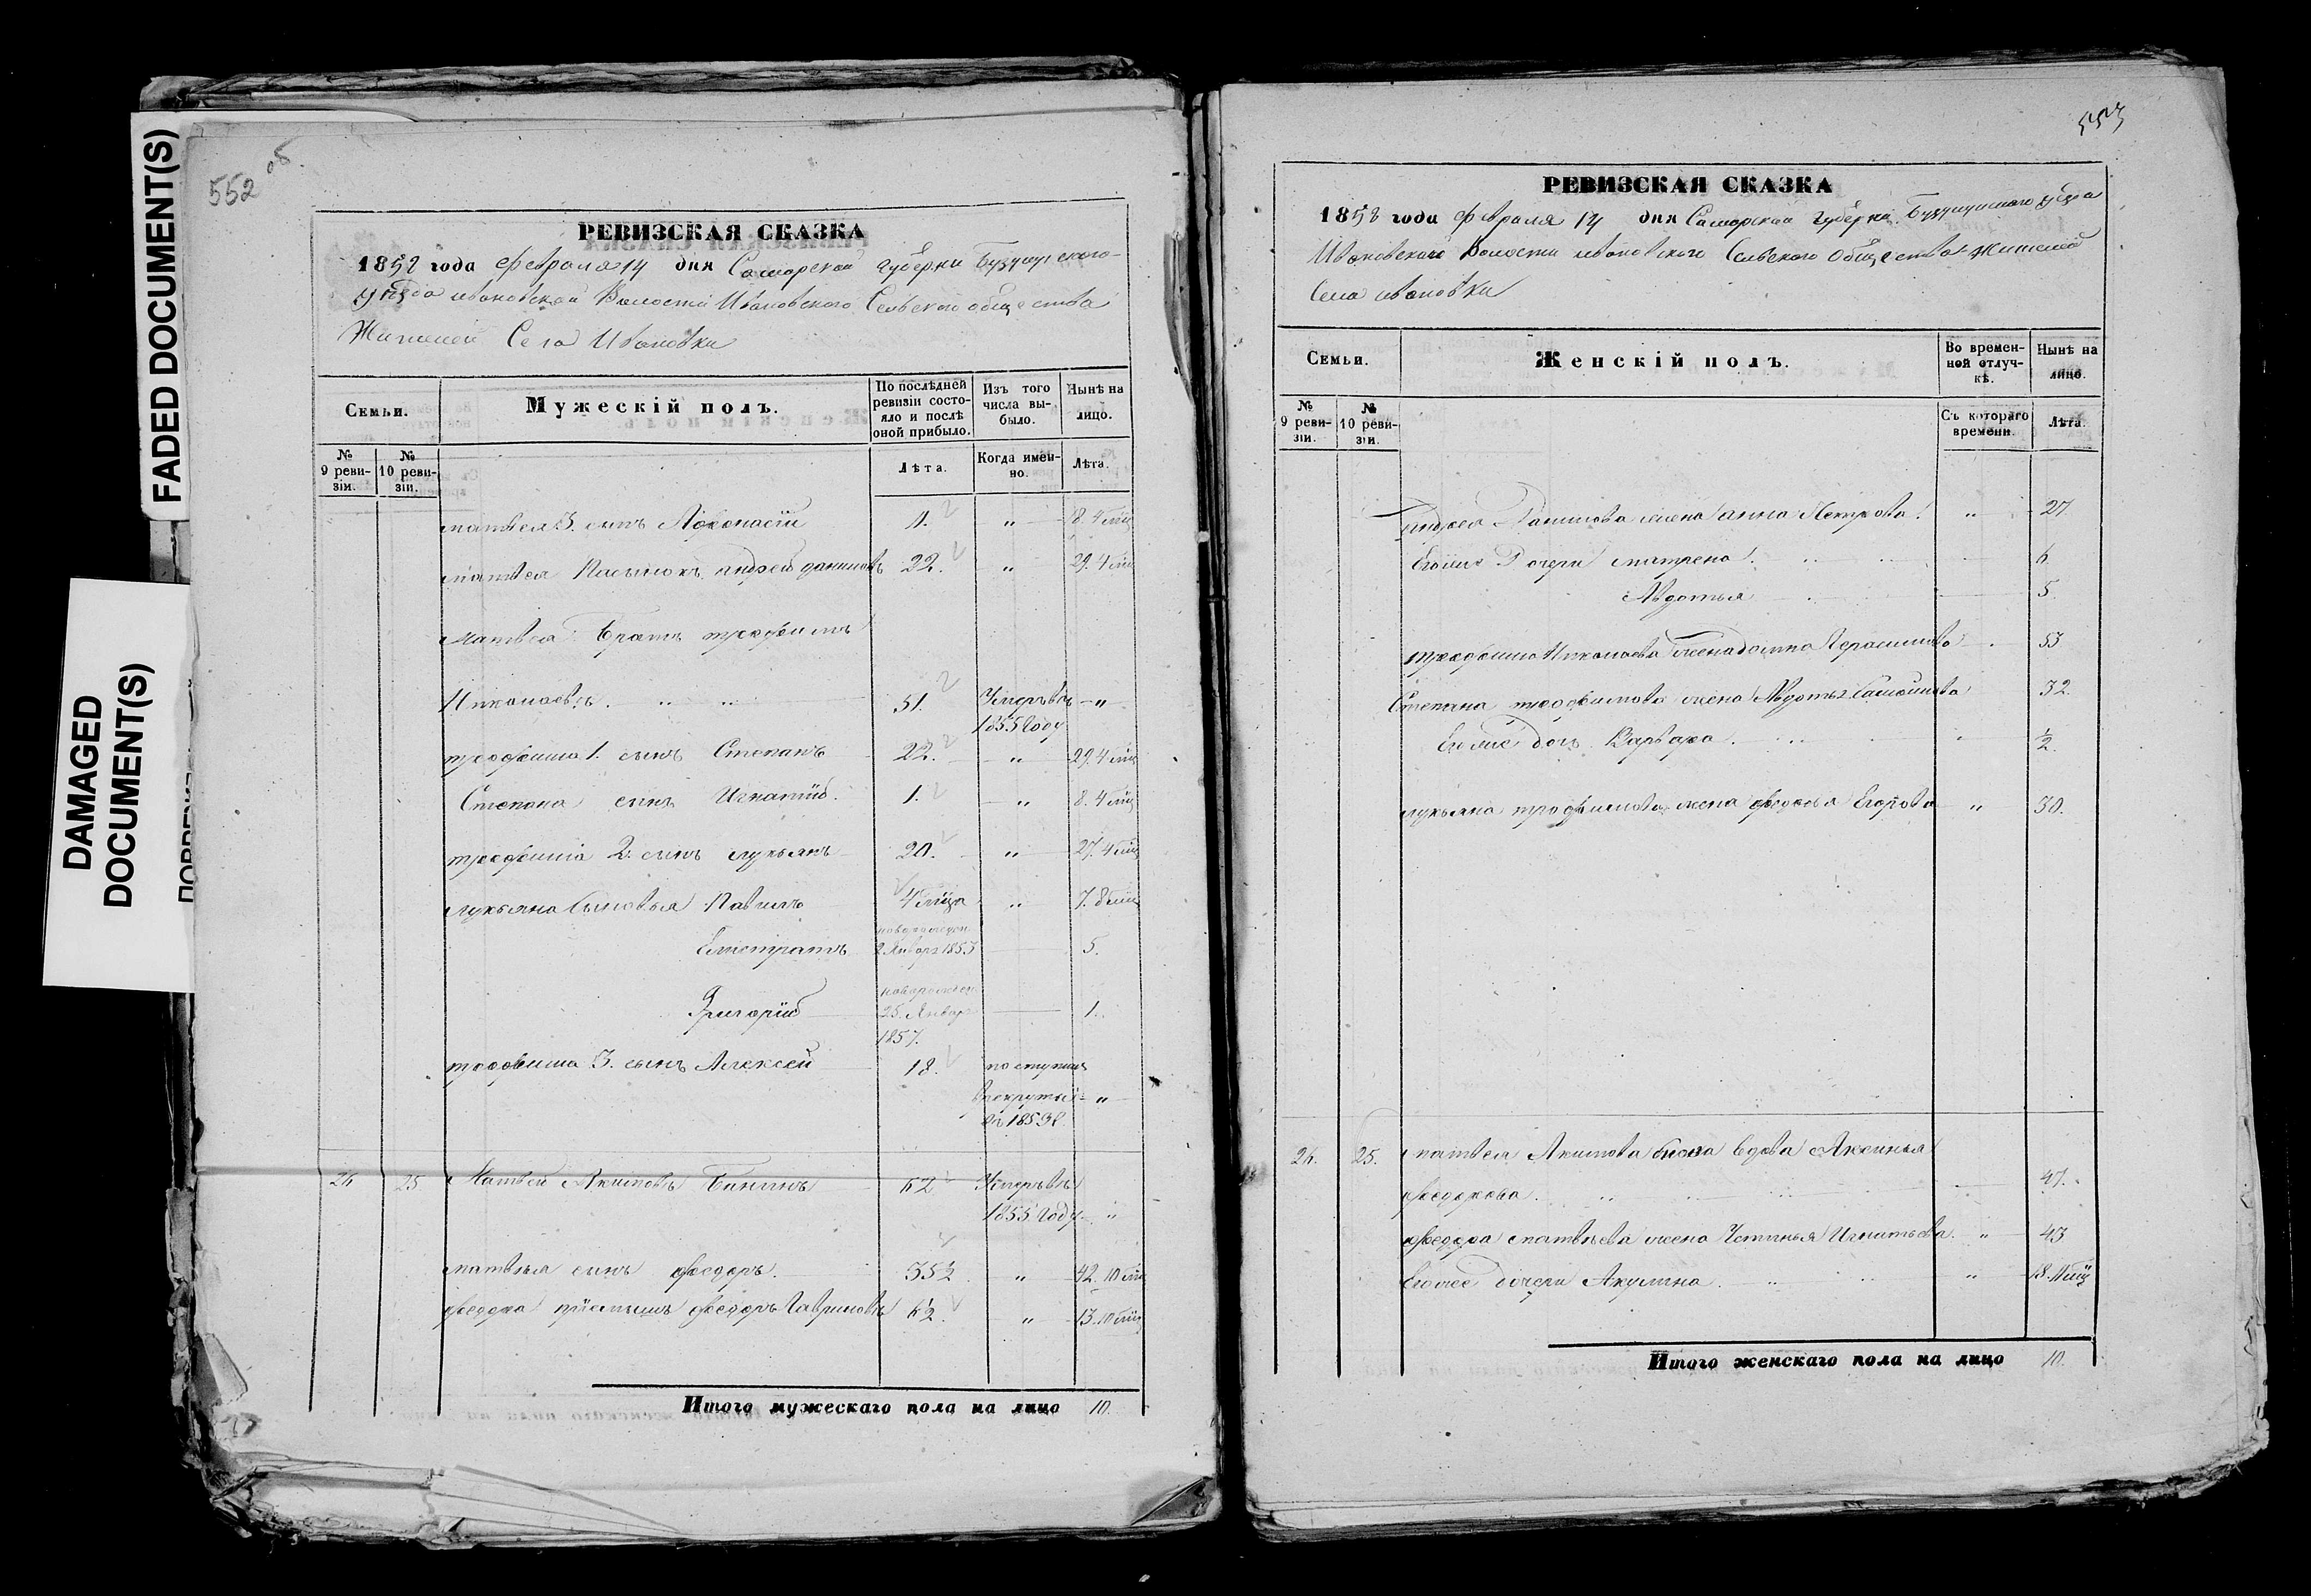 FADED DOCUMENT(S)
DAMAGED
DOCUMENT(S)
552 об.
РЕВИЗСКАЯ СКАЗКА
1858 года февраля 14 дня Самарской губерни Бузулукского
уезда ивановской Волости Ивановского Сельского общества
Жителей Села Ивановки
Семьи.
Мужескій полъ.
По послѣдней ревизіи состояло и послѣ оной прибыло.
Изъ того числа выбыло.
Нынѣ на лицо.
№ 9 ревизіи.
№ 10 ревизіи.
Лѣта.
Когда именно.
Лѣта.
матвея 3. сынъ Афонасій 1. " 8. 4 мц
матвея Пасынокъ андрей даниловъ 22. " 29. 4 мц
матвея Братъ трофимъ
Николаевъ. 51. Умеръ въ "
1855 Году
трофима 1. сынъ Степанъ 22. " 29. 4 мц
Степана сынъ Игнатий. 1. " 8. 4 мц
трофима 2. сынъ лукьянъ 20. " 27. 4 мц
лукьяна Сыновья Павилъ 4 мца " 7. 8 мц
новорожден
Елистратъ 2 Января 1853 5.
новорожден
Григорий 25. Январ 1.
1857.
трофима 3. сынъ Алексей 18. поступилъ
в рекруты "
въ 1853 г.
26 25 Матвей Акимовъ 62 Умеръ въ
1855 Году "
матвея сынъ федоръ. 35½ " 42. 10 мц
федора приемышъ федоръ Гавриловъ 6½. " 13. 10 мц
Итого мужескаго пола на лицо 10.
553
РЕВИЗСКАЯ СКАЗКА
1858 года февраля 14 дня Самарской губерни Бузулукского уезда
Ивановского Волости ивановского Сельского Общества Жителей
Села ивановки
Семьи.
Женскій полъ.
Во временной отлучкѣ.
Нынѣ на лицо.
№ 9 ревизіи.
№ 10 ревизіи.
Съ котораго времени.
Лѣта.
андрея Данилова жена анна Петрова. " 27
Егоже Дочери матрена. 6
Авдотья 5.
трофима Николаева жена домна Герасимова 53
Степана трофимова жена Авдотья Самойлова 32.
Егоже дочь Варвара. " ½.
лукьяна трофимова жена федосья Егорова " 30.
26. 25. матвея Акимова жена вдова Аксинья
федорова. 47.
федора матвеева жена Устинья Игнатьева. " 43
Егоже дочери Акулина. " 18. 11 мц
Итого женскаго пола на лицо 10.